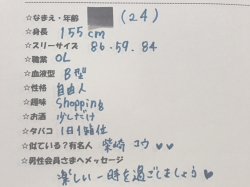 ☆なまえ・年齢 (24)
☆身長 155cm
☆スリーサイズ 86.59.84
☆職業 OL
☆血液型 B型
☆性格 自由人
☆趣味 Shopping
☆お酒 少しだけ
☆タバコ 1日1箱位
☆似ている?有名人 柴崎コウ♥♥
☆男性会員さまへメッセージ
楽しい一時を過ごしましょう♥